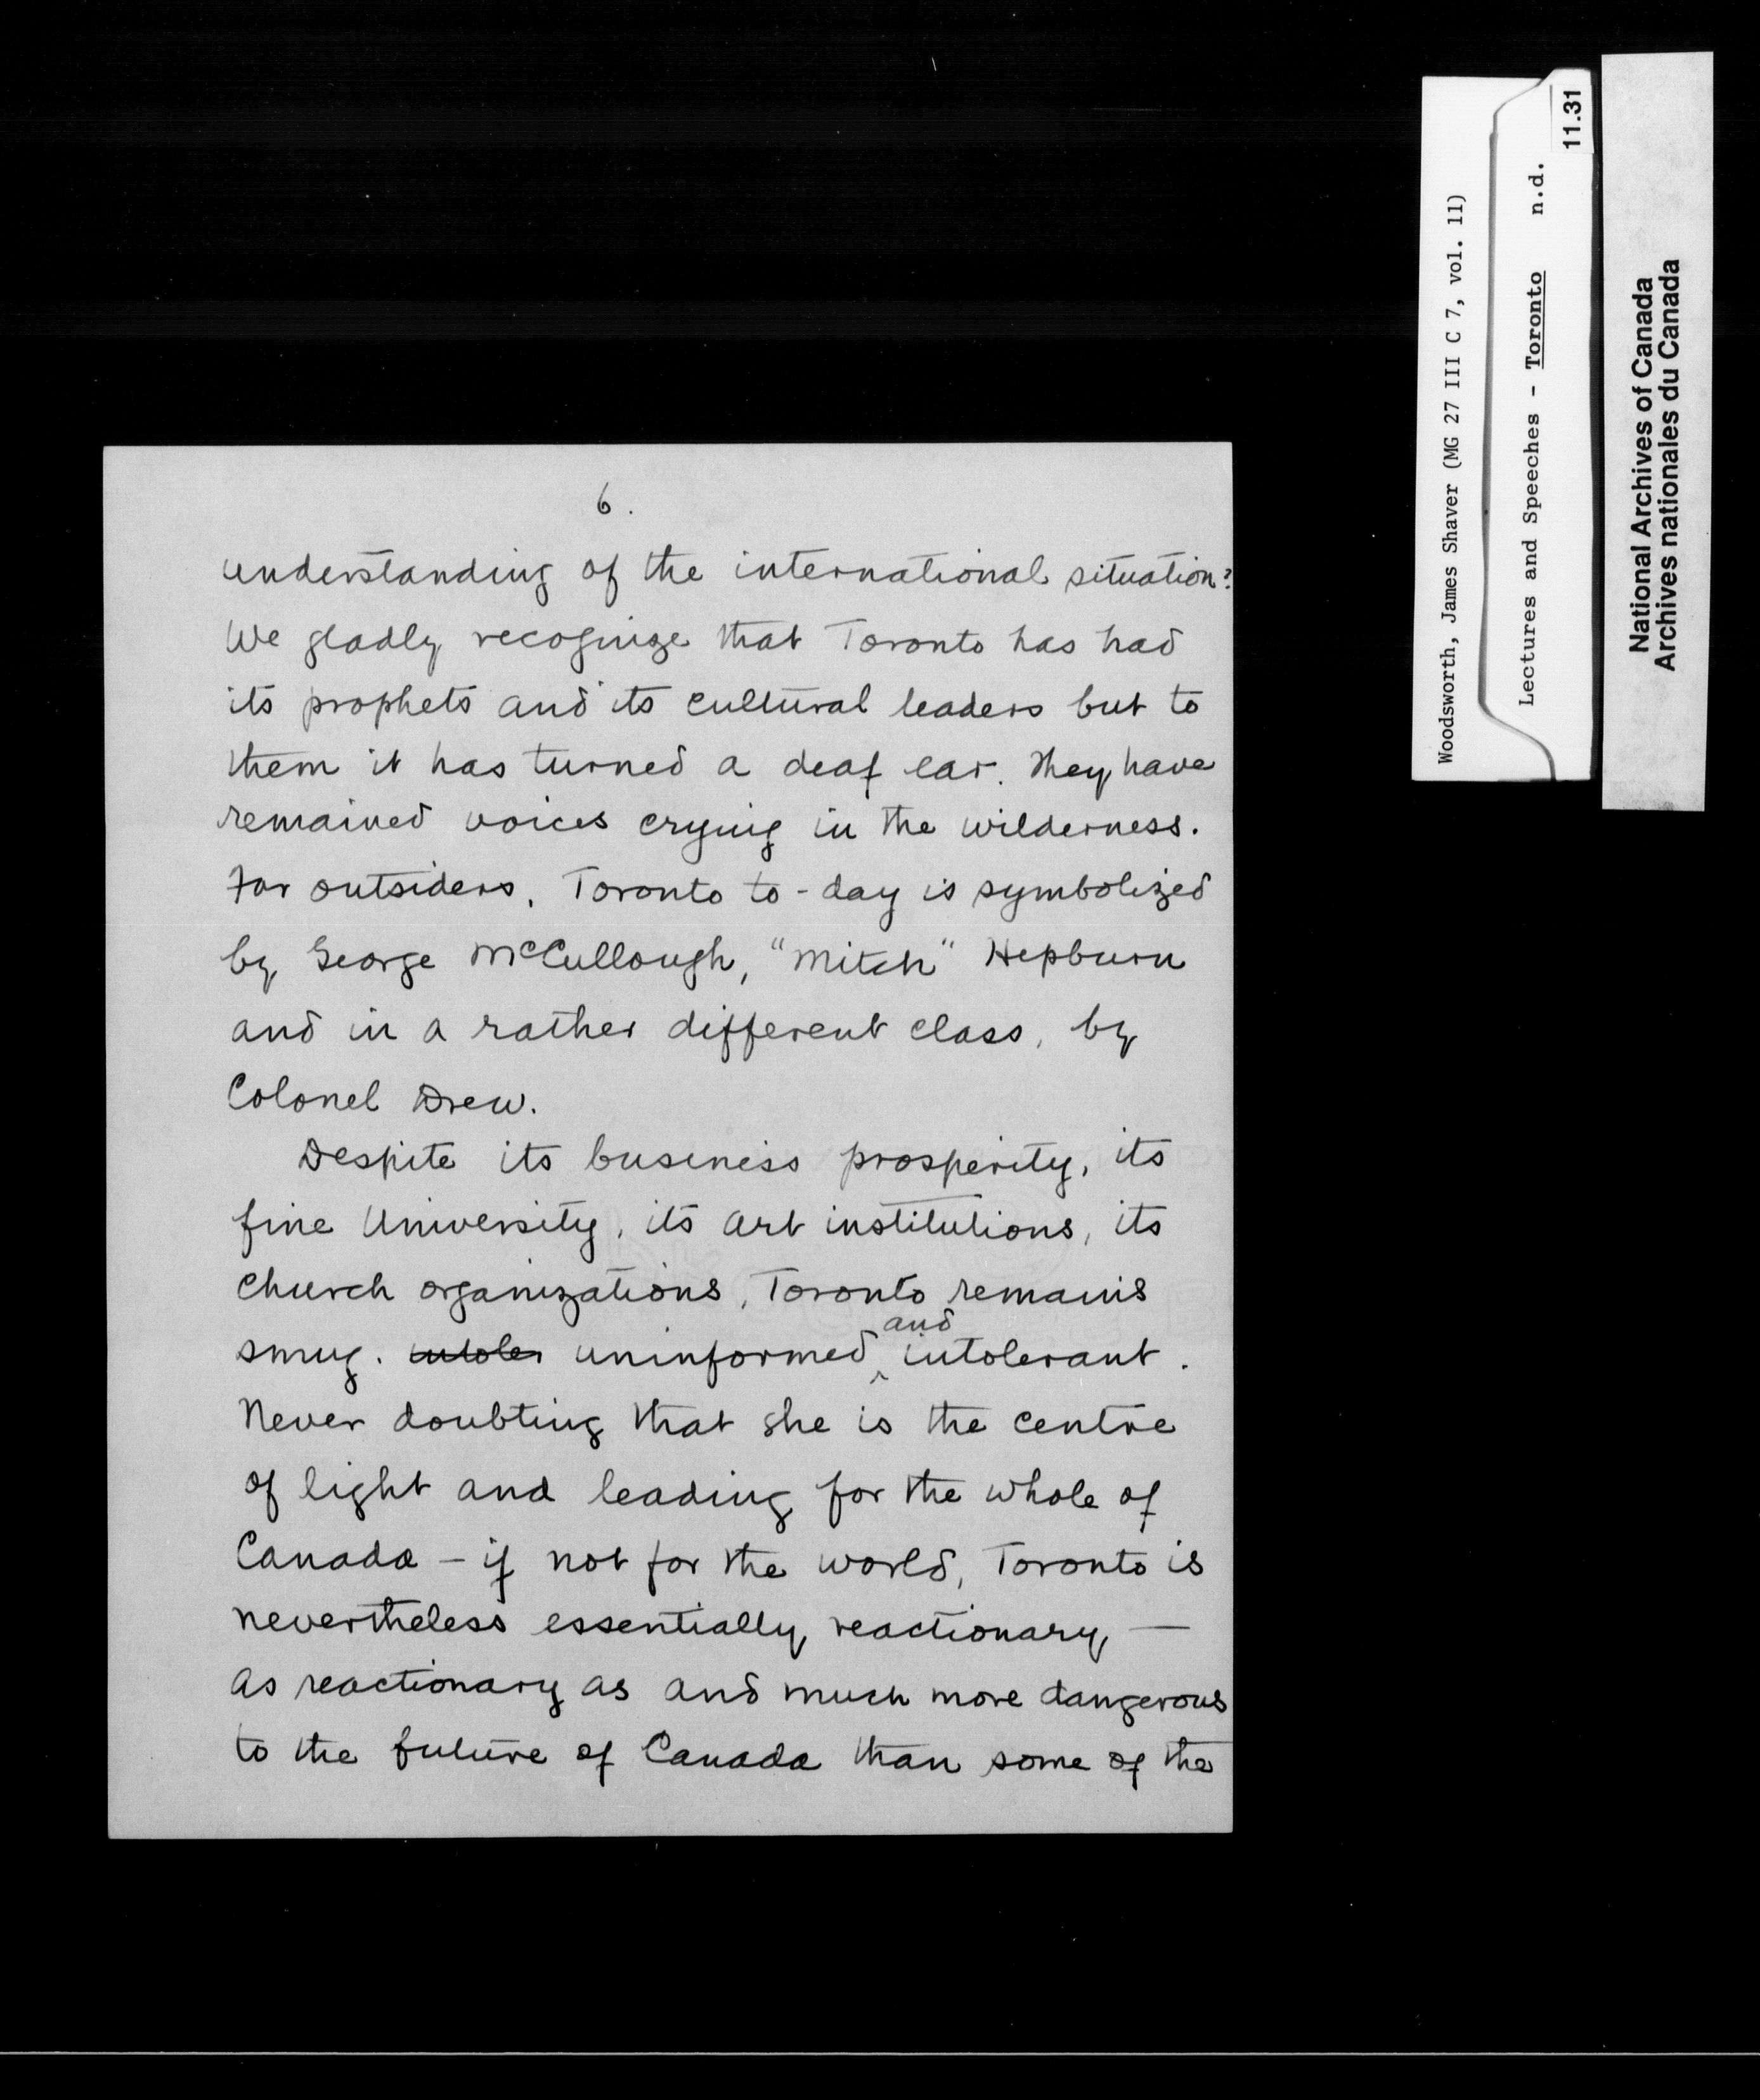 6.
understanding of the international situation?
We gladly recognize that Toronto has had
its prophets and its cultural leaders but to
them it has turned a deaf ear. They have
remained voices crying in the wilderness.
For outsiders, Toronto to-day is symbolized
by George McCullough, "Mitch" Hepburn
and in a rather different class, by
Colonel Drew.
Despite its business prosperity, its
fine University, its art institutions, its
church organizations, Toronto remains
and
smug. intoler uninformed ‸ intolerant.
Never doubting that she is the centre
of light and leading for the whole of
Canada – if not for the world, Toronto is
nevertheless essentially reactionary, —
as reactionary as and much more dangerous
to the future of Canada than some of the
Woodsworth, James Shaver (MG 27 III C 7, vol. 11)
Lectures and Speeches - Toronto n.d.
11.31
National Archives of Canada
Archives nationales du Canada